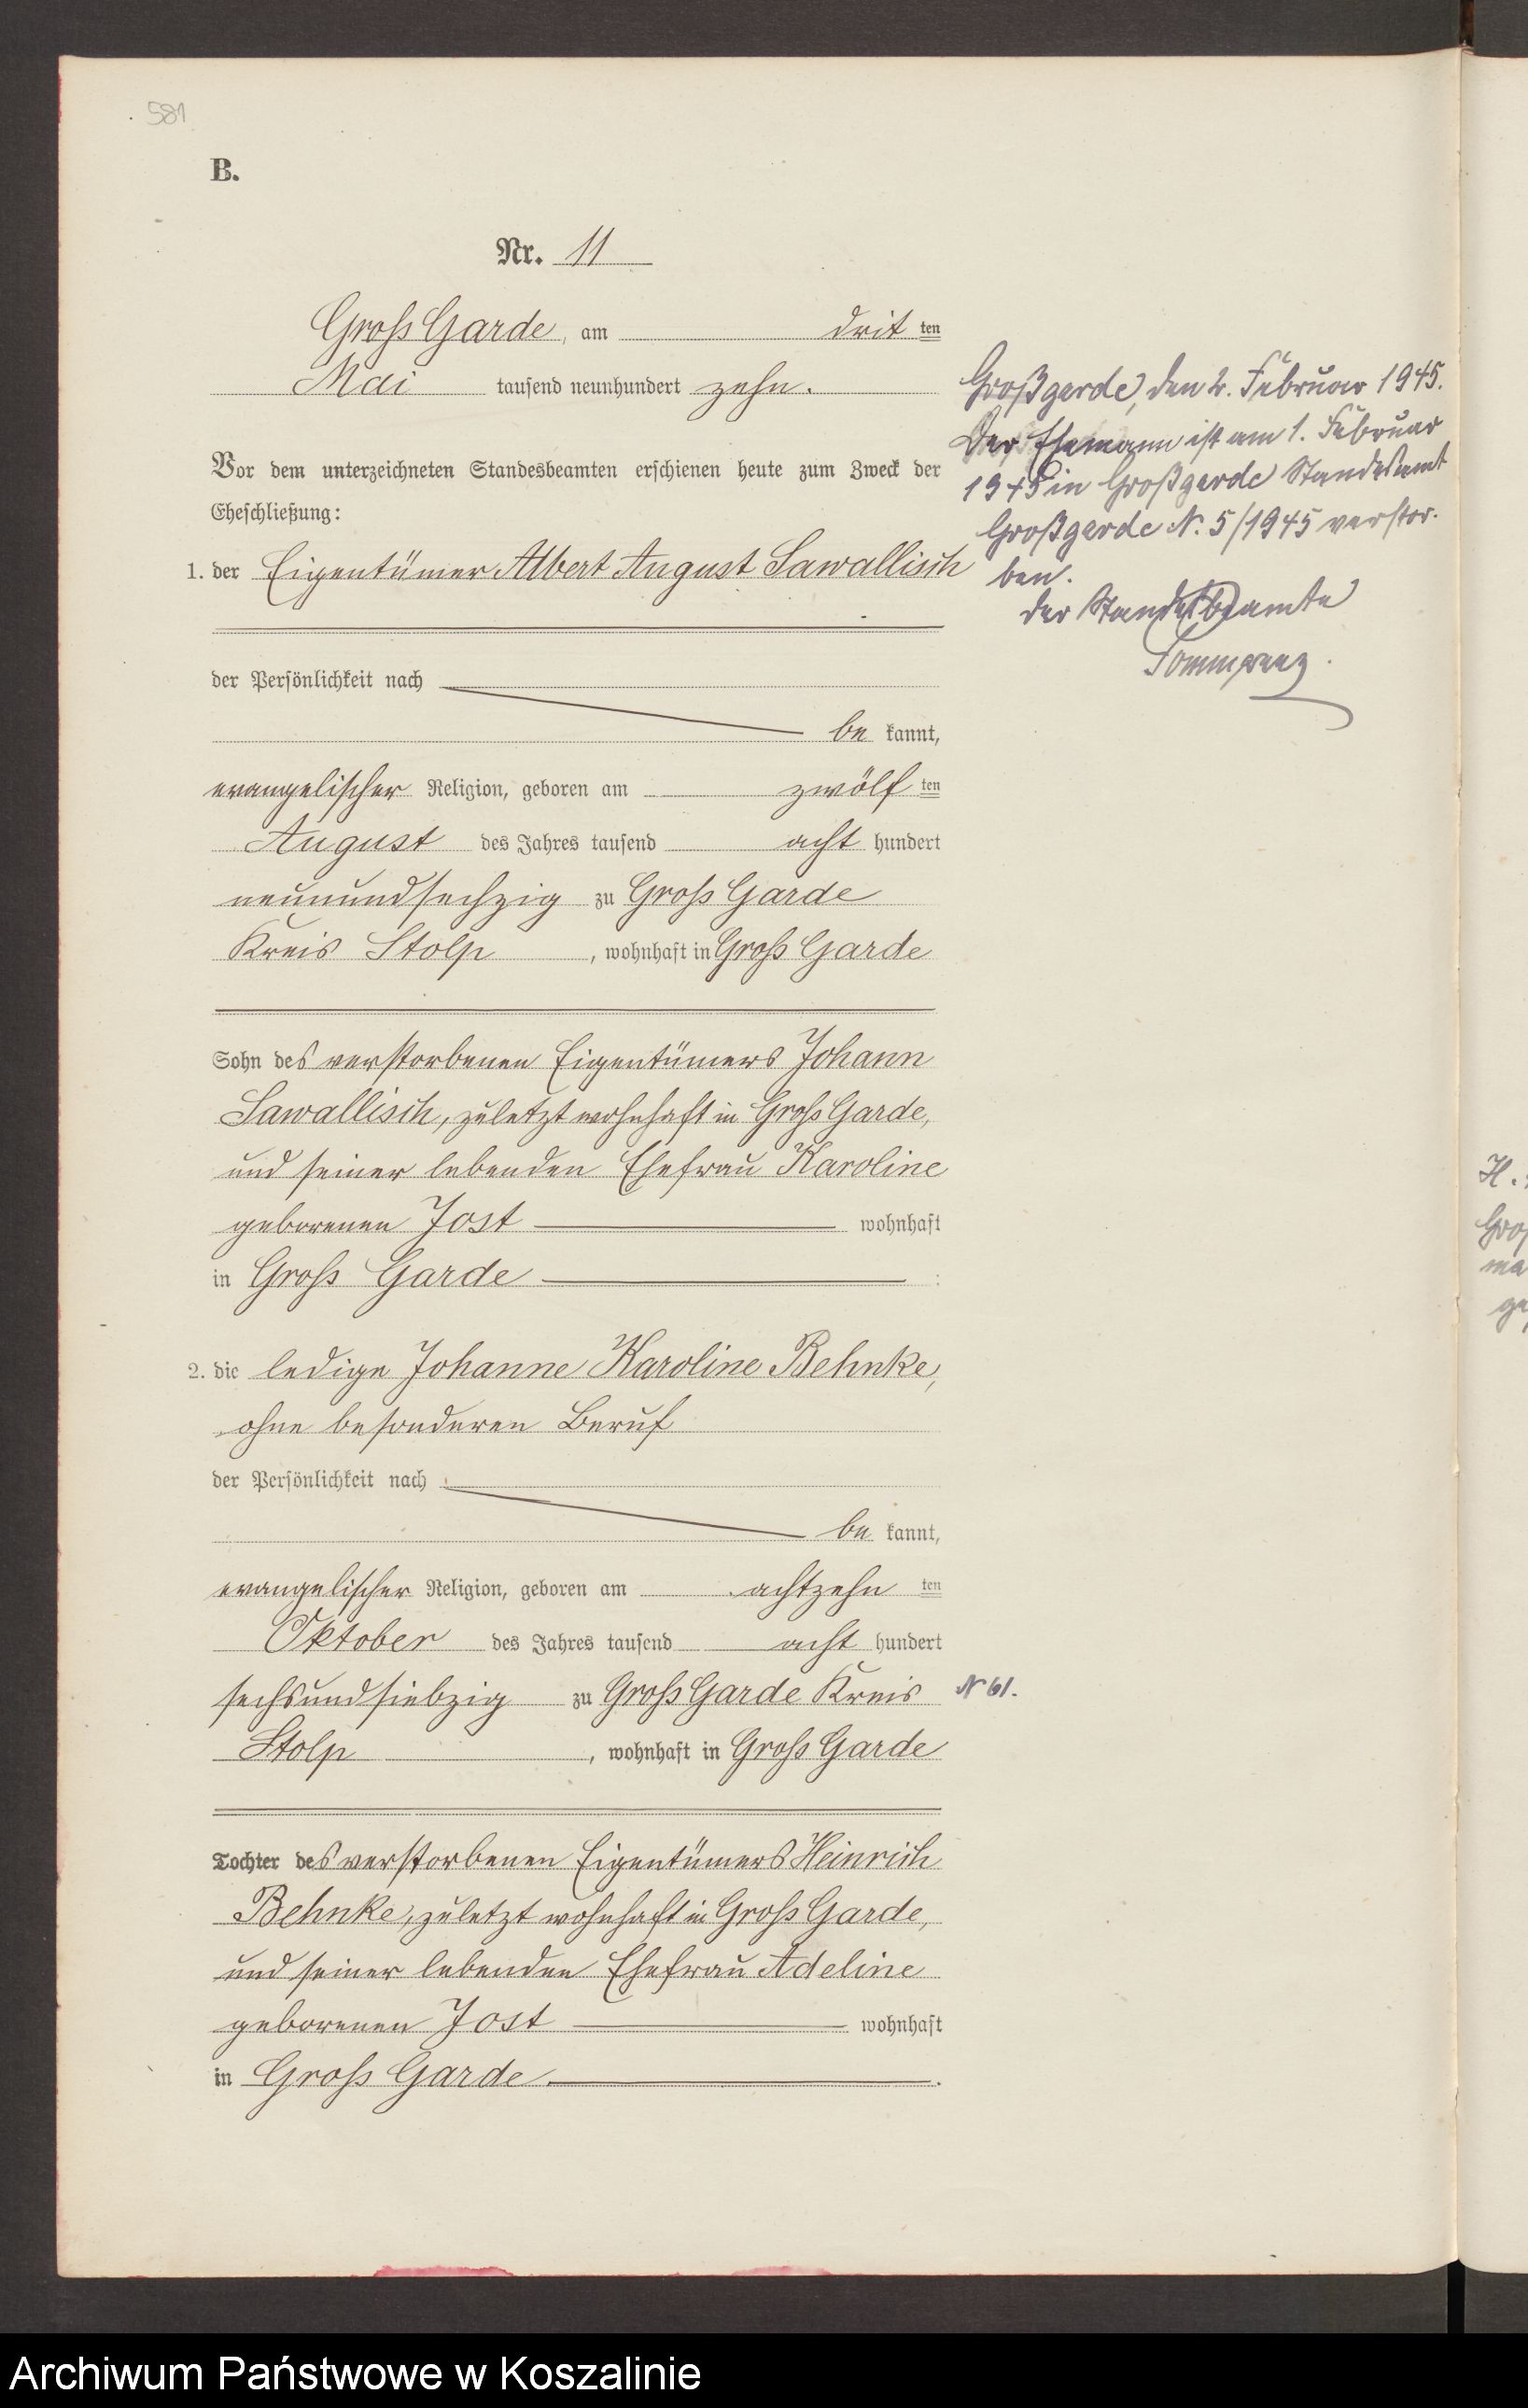 581
B.
Nr. 11
Gross Garde, am dritten
Mai tausend neunhundert zehn.
Vor dem unterzeichneten Standesbeamten erschienen heute zum Zweck der
Eheschließung:
1. der Eigentümer Albert August Sawallisch
der Persönlichkeit nach
be kannt,
evangelischer Religion, geboren am zwölf ten
August des Jahres tausend acht hundert
neunundsechzig zu Gross Garde
Kreis Stolp, wohnhaft in Gross Garde
Sohn des verstorbenen Eigentümers Johann
Sawallisch, zuletzt wohnhaft in Gross Garde,
und seiner lebenden Ehefrau Karoline
geborenen Jost wohnhaft
in Gross Garde :
2. die ledige Johanne Karoline Behnke,
ohne besonderen Beruf
der Persönlichkeit nach
be kannt,
evangelischer Religion, geboren am achtzehn ten
Oktober des Jahres tausend acht hundert
sechsundsiebzig zu Gross Garde Kreis
Stolp, wohnhaft in Gross Garde
Tochter des verstorbenen Eigentümers Heinrich
Behnke, zuletzt wohnhaft in Gross Garde,
und seiner lebenden Ehefrau Adeline
geborenen Jost wohnhaft
in Gross Garde.
Großgarde, den 2. Februar 1945.
Der Ehemann ist am 1. Februar
1945 in Großgarde Standesamt
Großgarde N. 5/1945 verstor-
ben.
der Standesbeamte
N 61.
H.
Archiwum Państwowe w Koszalinie